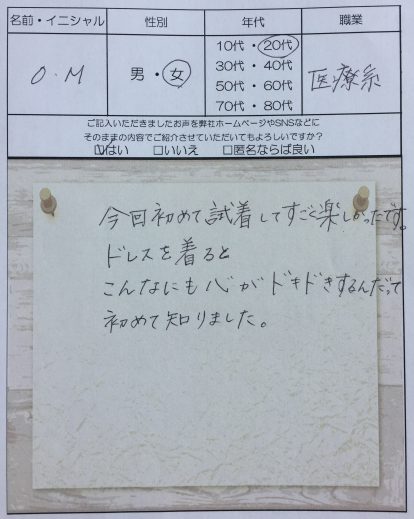 名前・イニシャル 性別 年代 職業
O.M 男・女 10代・20代 医療系
30代・40代
50代・60代
70代・80代
ご記入いただきましたお声を弊社ホームページやSNSなどに
そのままの内容でご紹介させていただいてもよろしいですか？
☑はい □いいえ □匿名ならば良い
今回初めて試着してすごく楽しかったです。
ドレスを着ると
こんなにも心がドキドキするんだって
初めて知りました。